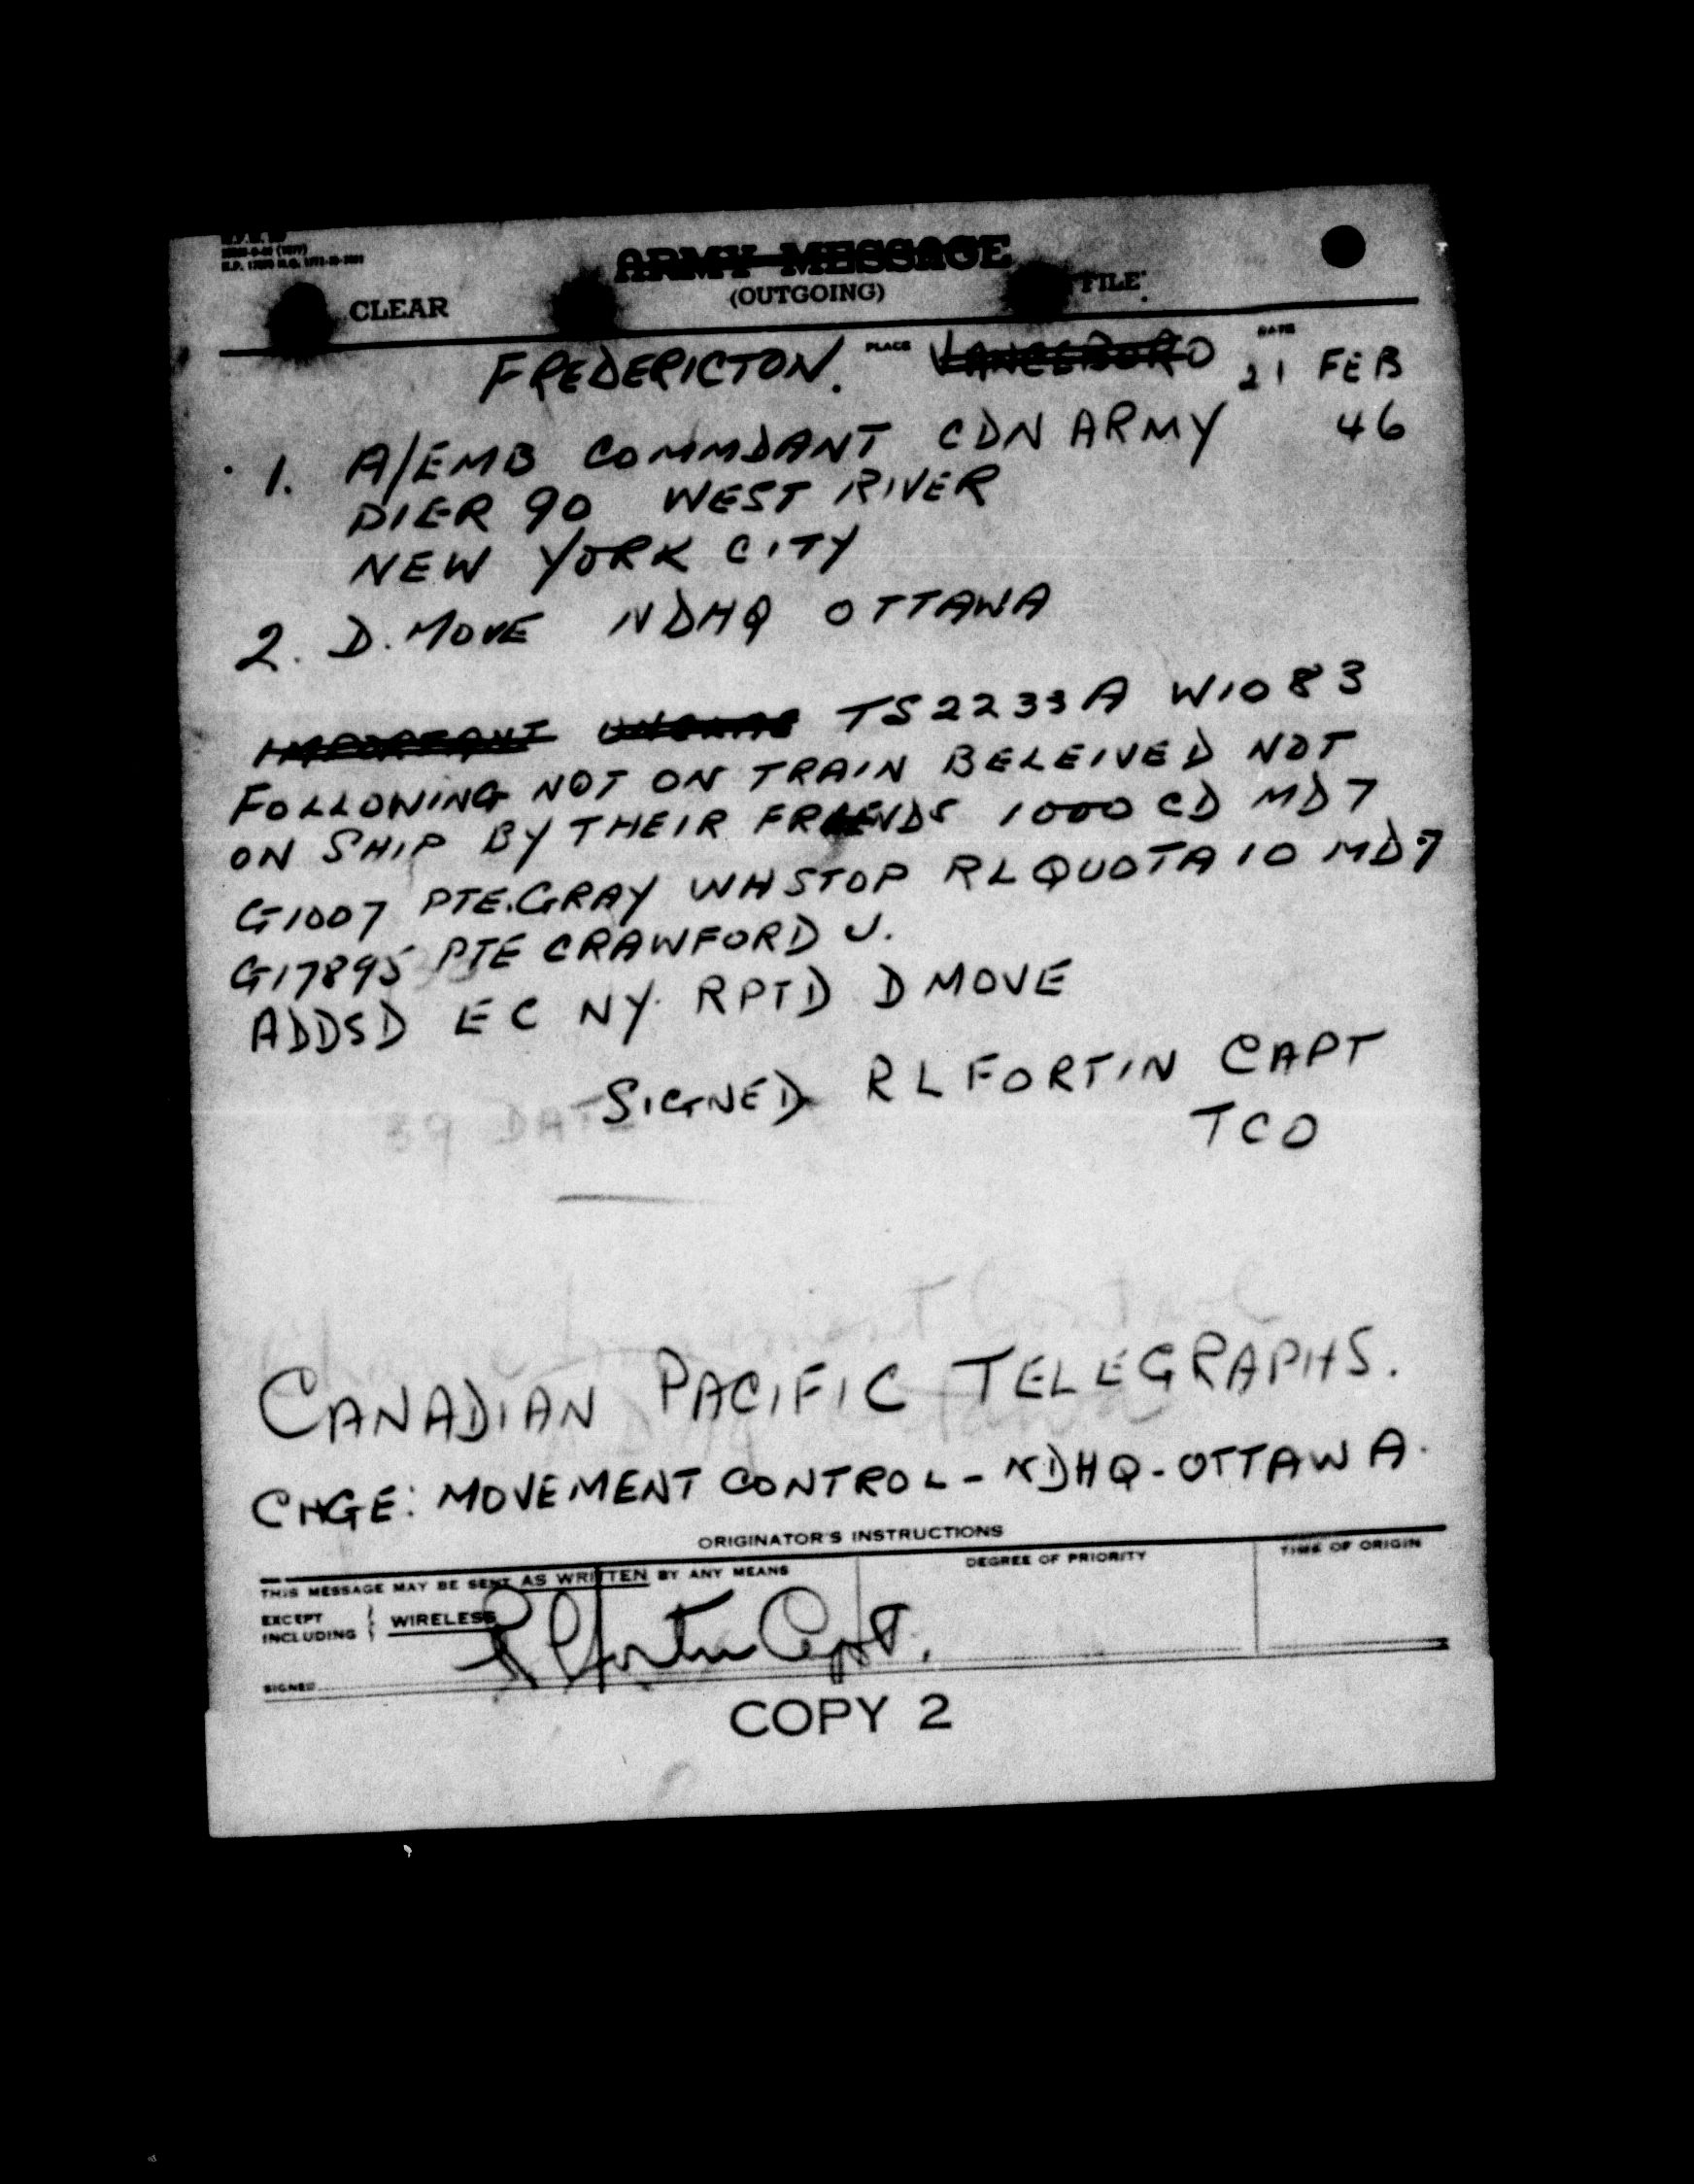 ARMY MESSAGE
(OUTGOING)
CLEAR
FILE
PLACE
DATE
FREDERICTON. VANCEBORO 21 FEB
46
1. A/EMB COMMDANT CDN ARMY
PIER 90 WEST RIVER
NEW YORK CITY
2. D. MOVE NDHQ OTTAWA
IMPORTANT TS2233A W1083
FOLLOWING NOT ON TRAIN BELEIVED NOT
ON SHIP BY THEIR FRIENDS 1000 CD MD7
G1007 PTE. GRAY WH STOP RL QUOTA 10 MD7
G17895 PTE CRAWFORD J.
ADDSD EC NY. RPTD D MOVE
SIGNED RL FORTIN CAPT
TCO
39 DATE
CANADIAN PACIFIC TELEGRAPHS.
CHGE: MOVEMENT CONTROL - NDHQ - OTTAWA.
ORIGINATOR'S INSTRUCTIONS
THIS MESSAGE MAY BE SENT AS WRITTEN BY ANY MEANS
DEGREE OF PRIORITY
TIME OF ORIGIN
EXCEPT
INCLUDING } WIRELESS
SIGNED RL Fortin Capt.
COPY 2